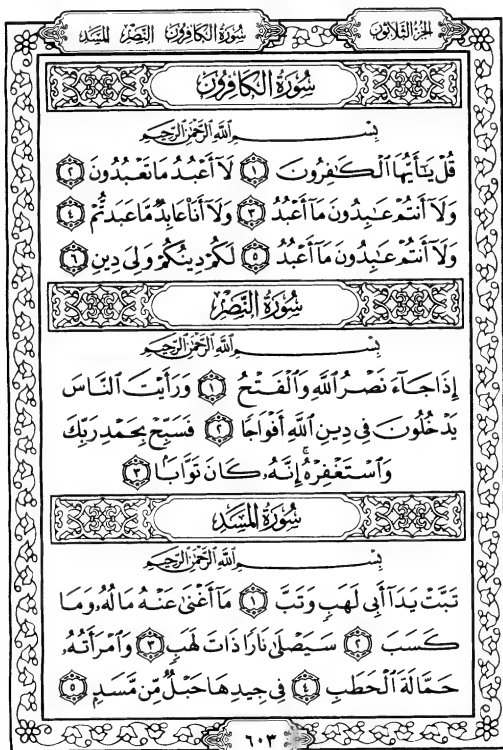 الجزء الثلاثون سورة الكافرون النصر المسد
سُورَةُ الكَافِرُون
بِسْمِ اللَّهِ الرَّحْمَٰنِ الرَّحِيمِ
قُلْ يَٰٓأَيُّهَا ٱلْكَٰفِرُونَ ١ لَآ أَعْبُدُ مَا تَعْبُدُونَ ٢
وَلَآ أَنتُمْ عَٰبِدُونَ مَآ أَعْبُدُ ٣ وَلَآ أَنَا۠ عَابِدٌ مَّا عَبَدتُّمْ ٤
وَلَآ أَنتُمْ عَٰبِدُونَ مَآ أَعْبُدُ ٥ لَكُمْ دِينُكُمْ وَلِىَ دِينِ ٦
سُورَةُ النَّصْر
بِسْمِ اللَّهِ الرَّحْمَٰنِ الرَّحِيمِ
إِذَا جَآءَ نَصْرُ ٱللَّهِ وَٱلْفَتْحُ ١ وَرَأَيْتَ ٱلنَّاسَ
يَدْخُلُونَ فِى دِينِ ٱللَّهِ أَفْوَاجًا ٢ فَسَبِّحْ بِحَمْدِ رَبِّكَ
وَٱسْتَغْفِرْهُ ۚ إِنَّهُۥ كَانَ تَوَّابًۢا ٣
سُورَةُ المَسَد
بِسْمِ اللَّهِ الرَّحْمَٰنِ الرَّحِيمِ
تَبَّتْ يَدَآ أَبِى لَهَبٍ وَتَبَّ ١ مَآ أَغْنَىٰ عَنْهُ مَالُهُۥ وَمَا
كَسَبَ ٢ سَيَصْلَىٰ نَارًا ذَاتَ لَهَبٍ ٣ وَٱمْرَأَتُهُۥ
حَمَّالَةَ ٱلْحَطَبِ ٤ فِى جِيدِهَا حَبْلٌ مِّن مَّسَدٍۭ ٥
٦٠٣